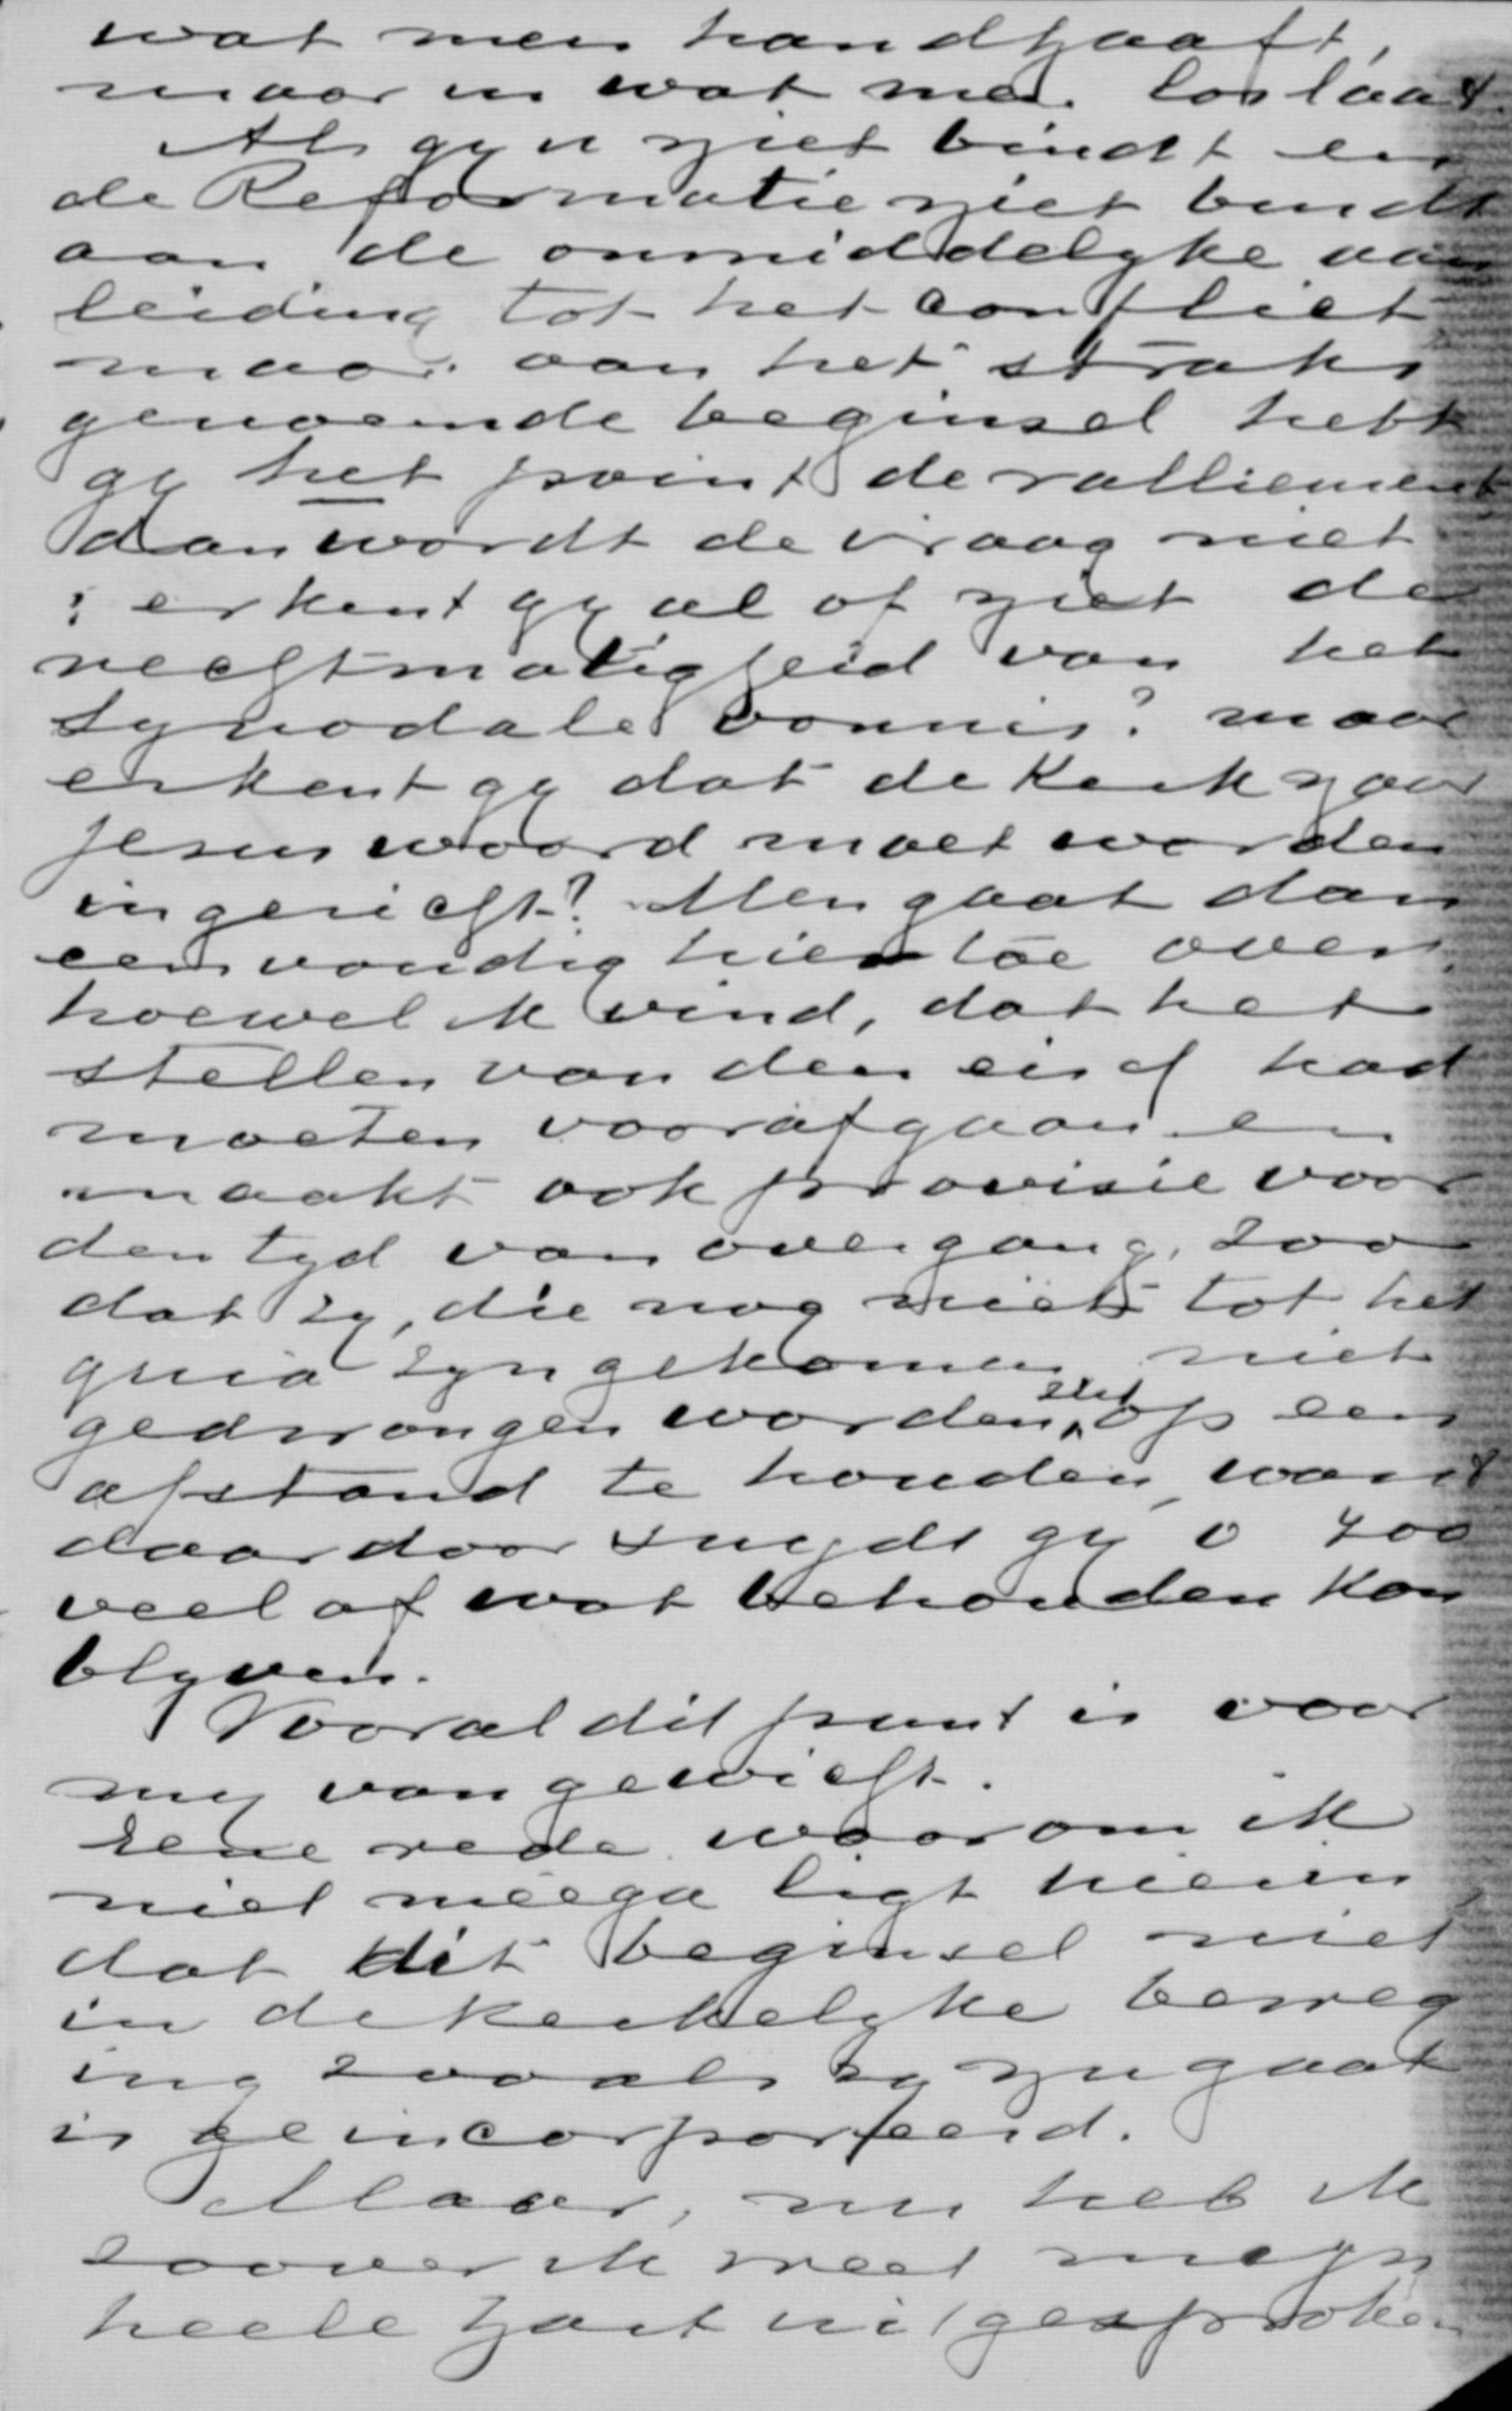 wat men handhaaft,
maar in wat men loslaat.
Als gy u niet bindt en
de Reformatie niet bindt
aan de onmiddelyke aan
leiding tot het conflict
maar aan het straks
genoemde beginsel hebt
gy het point de ralliement
dan wordt de vraag niet
: erkent gy al of niet de
rechtmatigheid van het
Synodale vonnis? maar
erkent gy dat de Kerk naar
Jesus woord moet worden
ingericht? Men gaat dan
eenvoudig hiertoe over,
hoewel ik vind, dat het
stellen van den eisch had
moeten voorafgaan en
maakt ook provisie voor
den tyd van overgang, zoo
dat zy, die nog niet tot het
quia zyn gekomen niet
gedwongen worden zich op een
afstand te houden, want
daardoor snydt gy o zoo
veel af wat behouden kon
blyven.
Vooral dit punt is voor
my van gewicht.
Eene rede waarom ik
niet meega ligt hierin,
dat dit beginsel niet
in de kerkelyke beweg
ing zooals zy nu gaat
is geincorporeerd.
Maar, nu heb ik
zoover ik weet myn
heele hart uitgesproken